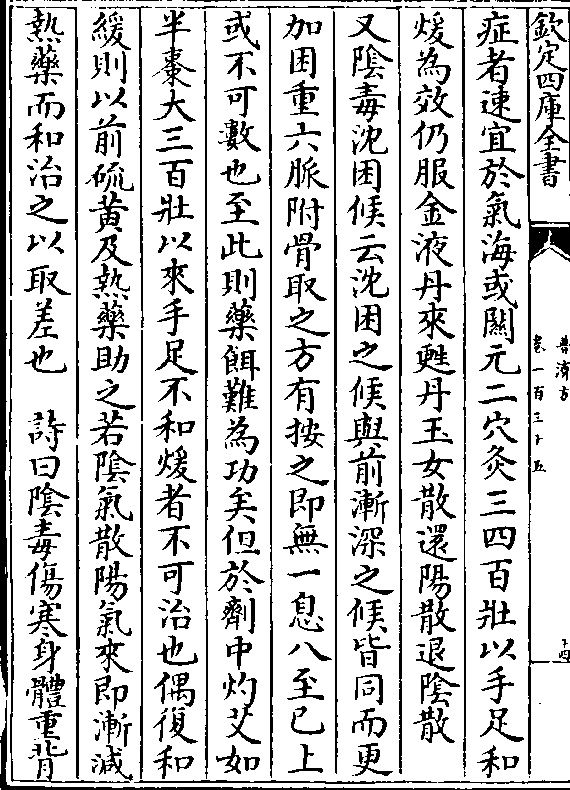 欽定四庫全書
普濟方
卷一百三十五
十四
症者速宜於氣海或關元二穴灸三四百壯以手足和
煖為效仍服金液丹來甦丹玉女散還陽散退陰散
又陰毒沈困候云沈困之候與前漸深之候皆同而更
加困重六脈附骨取之方有按之即無一息八至已上
或不可數也至此則藥餌難為功矣但於劑中灼艾如
半棗大三百壯以來手足不和煖者不可治也偶復和
緩則以前硫黄及熱藥助之若陰氣散陽氣來即漸減
熱藥而和治之以取差也　詩曰陰毒傷寒身體重背